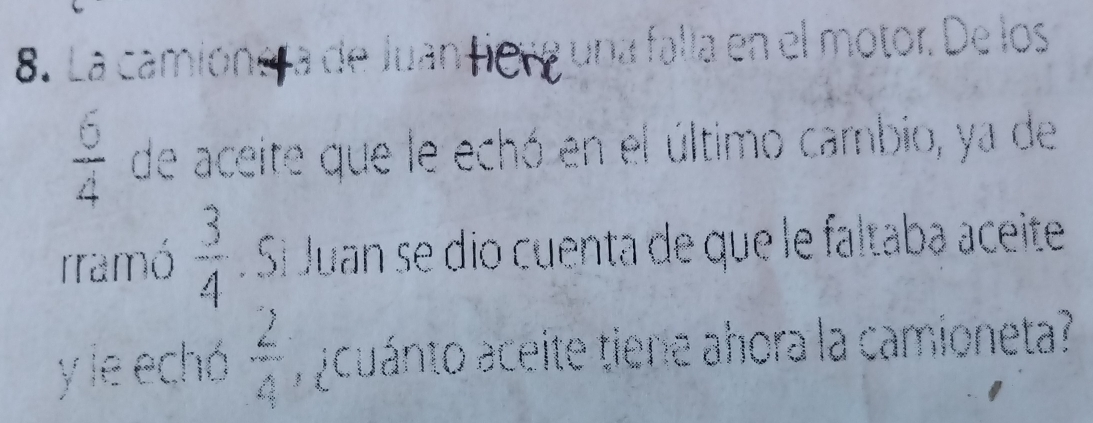 8. La camioneta de Juan tiene una falla en el motor. De los
6/4 de aceite que le echó en el último cambio, ya de
rramó 3/4. Si Juan se dio cuenta de que le faltaba aceite
y le echó 2/4, ¿cuánto aceite tiene ahora la camioneta?